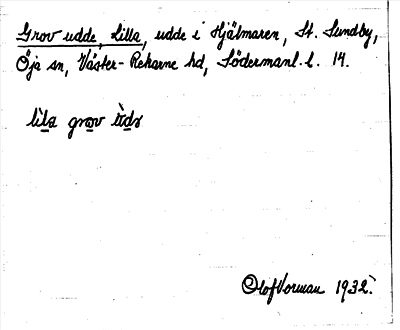 Grov udde, Lilla, udde i Hjälmaren, St. Sundby,
Öja sn, Väster-Rekarne hd, Södermanl. l. 14.
lila grov
Olof Vorman 1932.